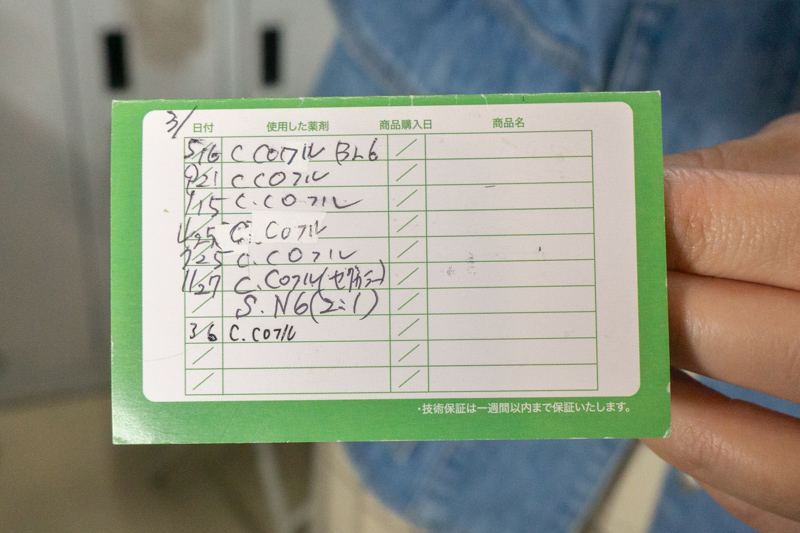 3/
日付 使用した薬剤 商品購入日 商品名
5/16 C COフル BL6
9/21 C COフル
1/15 C.COフル
4/25 C. COフル
7/25 C.COフル
11/27 C.COフル
S.N6(2:1)
3/6 C.COフル
・技術保証は一週間以内まで保証いたします。